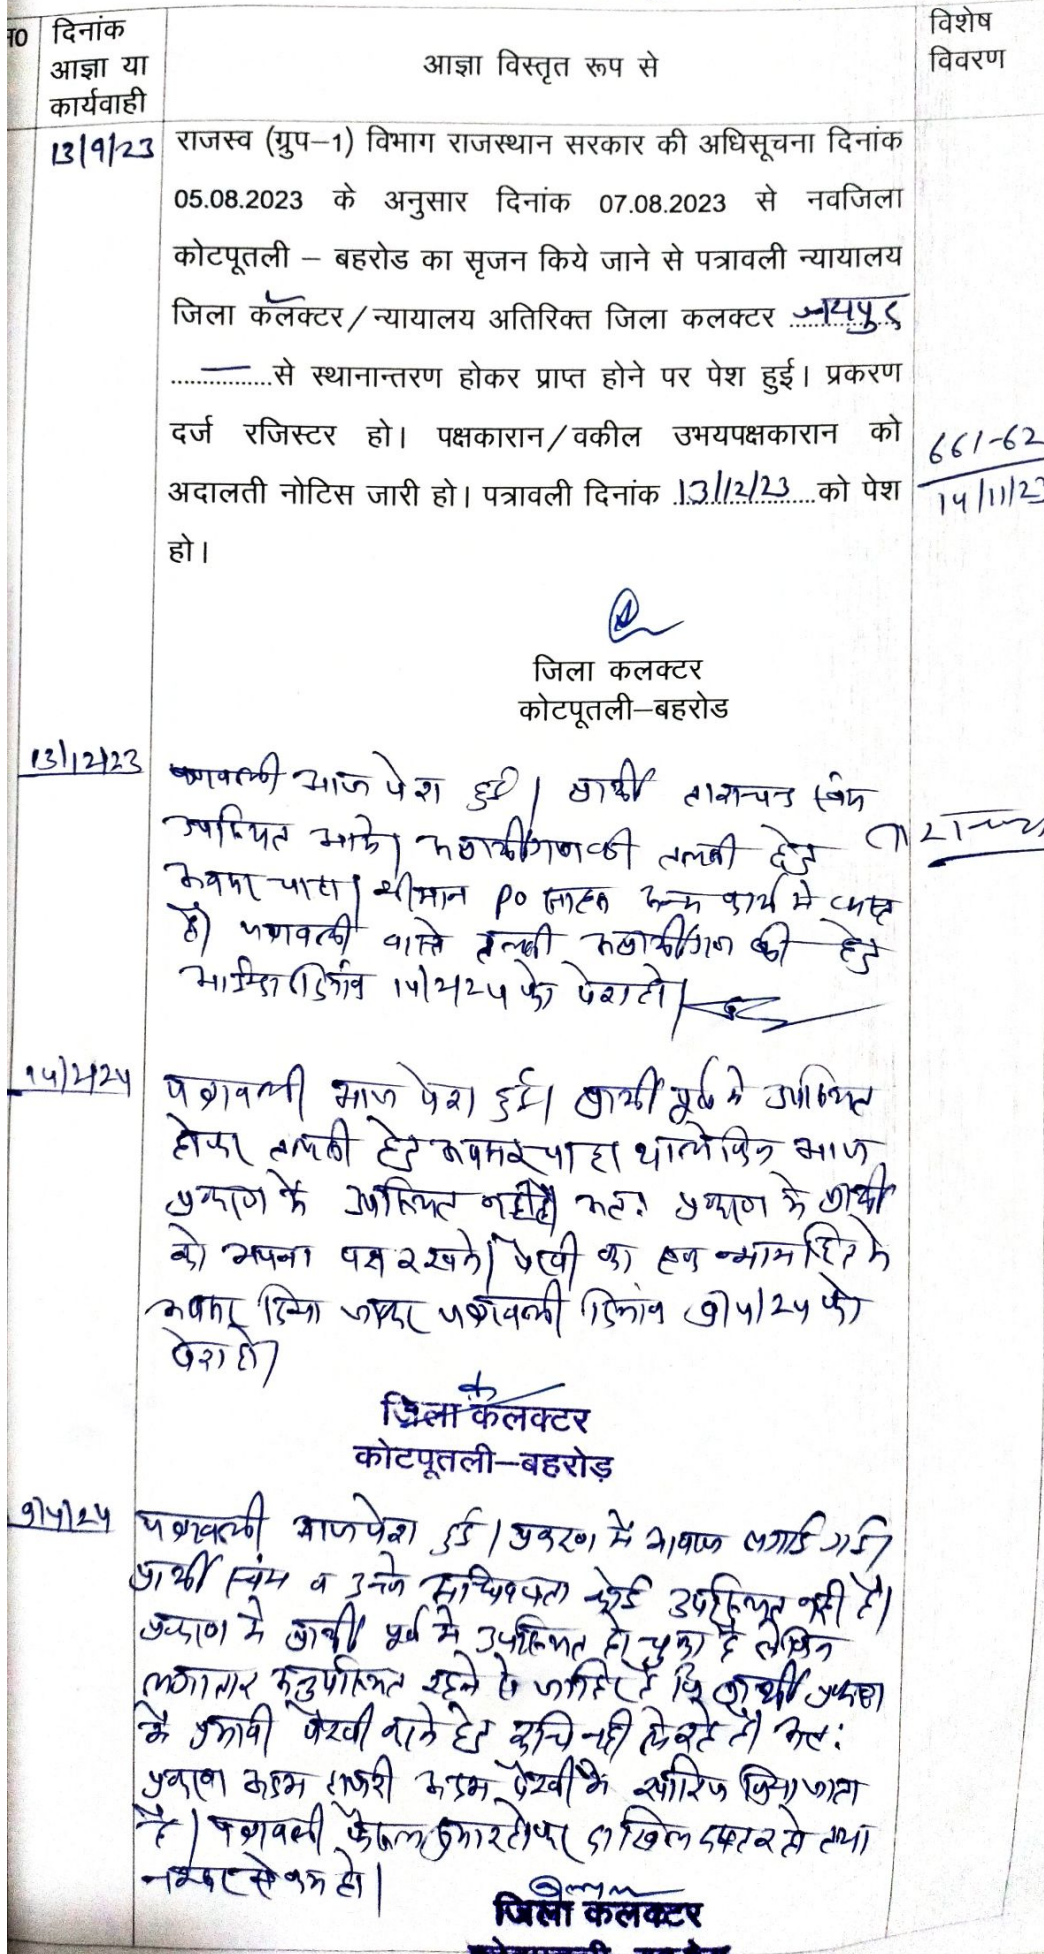 दिनांक
आज्ञा या
कार्यवाही
आज्ञा विस्तृत रूप से
विशेष
विवरण
13/9/23
राजस्व (ग्रुप–1) विभाग राजस्थान सरकार की अधिसूचना दिनांक
05.08.2023 के अनुसार दिनांक 07.08.2023 से नवजिला
कोटपूतली – बहरोड का सृजन किये जाने से पत्रावली न्यायालय
जिला कॅलक्टर/न्यायालय अतिरिक्त जिला कलक्टर जयपुर
से स्थानान्तरण होकर प्राप्त होने पर पेश हुई। प्रकरण
दर्ज रजिस्टर हो। पक्षकारान/वकील उभयपक्षकारान को
अदालती नोटिस जारी हो। पत्रावली दिनांक 13/12/23 को पेश
हो।
661-62
14/11/23
जिला कलक्टर
कोटपूतली–बहरोड
13/12/23
पत्रावली आज पेश हुई। प्रार्थी ताराचन्द स्वंय
उपस्थित आये। अप्रार्थीगण की तलबी हेतु
अवसर चाहा। श्रीमान PO साहब अन्य कार्य में व्यस्त
है। पत्रावली वास्ते तलबी अप्रार्थीगण की हेतु
दिनांक 14/2/24 को पेश हो।
14/2/24
पत्रावली आज पेश हुई। प्रार्थी पूर्व में उपस्थित
होकर तलबी हेतु अवसर चाहा था लेकिन आज
प्रकरण में उपस्थित नहीं है। अतः प्रकरण में प्रार्थी
को अपना पक्ष रखने/पैरवी का न्यायहित में
अवसर दिया जाकर पत्रावली दिनांक 9/4/24 को
पेश हो।
जिला कलक्टर
कोटपूतली–बहरोड़
9/4/24
पत्रावली आज पेश हुई। प्रकरण में आवाज लगाई गई।
प्रार्थी स्वंय व उनके अधिवक्ता कोई उपस्थित नहीं है।
प्रकरण में प्रार्थी पूर्व में उपस्थित हो चुका है लेकिन
लगातार अनुपस्थित रहने से जाहिर है कि प्रार्थी प्रकरण
में प्रभावी पैरवी करने हेतु रूचि नहीं ले रहे है। अतः
प्रकरण अदम हाजरी अदम पैरवी में खारिज किया जाता
है। पत्रावली फैसल शुमार होकर दाखिल दफ्तर हो तथा
नम्बर से कम हो।
जिला कलक्टर